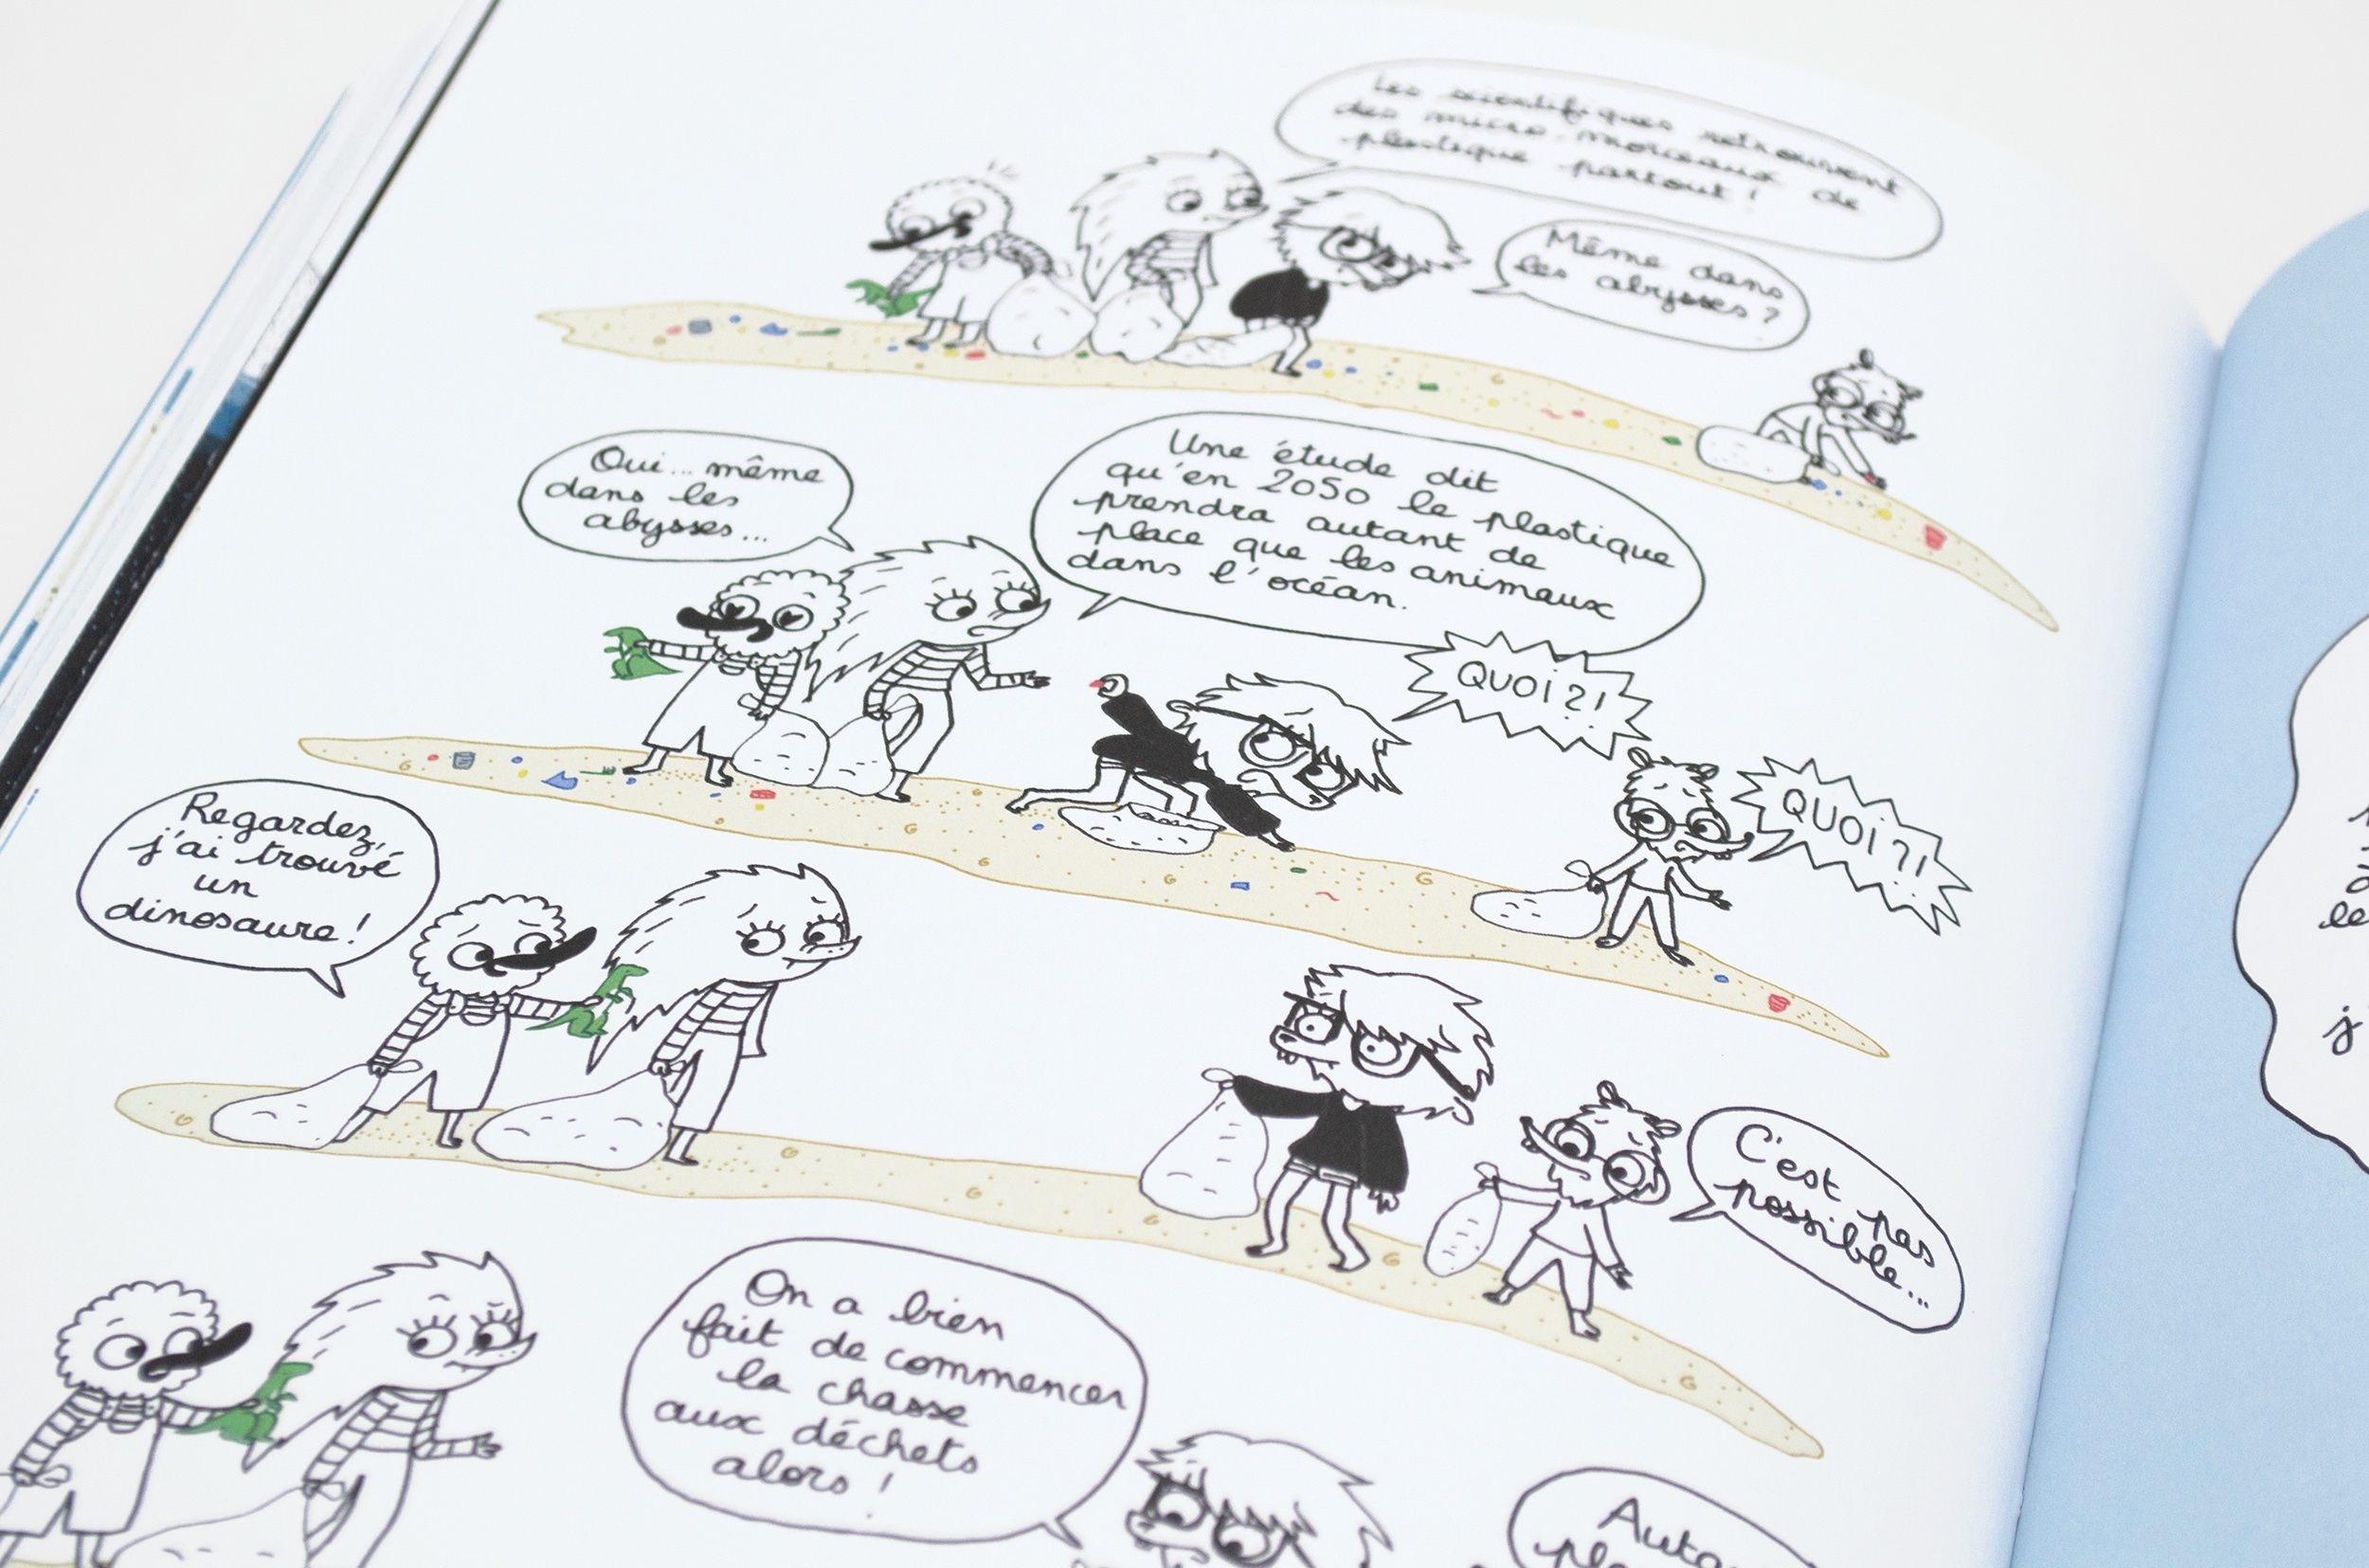 Les scientifiques retrouvent
des micro-morceaux de
plastique partout !
Même dans
les abysses ?
Oui... même
dans les
abysses...
Une étude dit
qu'en 2050 le plastique
prendra autant de
place que les animaux
dans l'océan.
QUOI ?!
QUOI ?!
Regardez,
j'ai trouvé
un
dinosaure !
C'est pas
possible...
On a bien
fait de commencer
la chasse
aux déchets
alors !